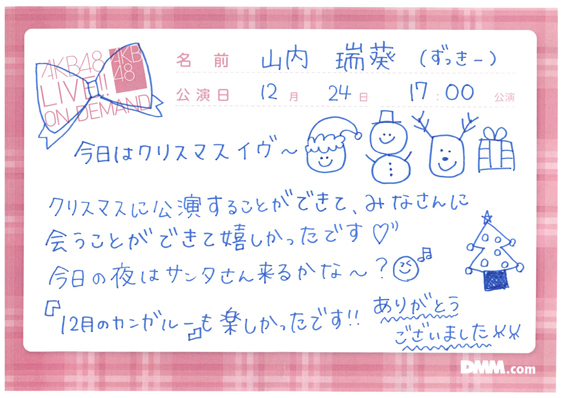 AKB48
LIVE!!
ON DEMAND
AKB
48
名前 山内 瑞葵 (ずっきー)
公演日 12月 24日 17:00 公演
今日はクリスマスイヴ〜
クリスマスに公演することができて、みなさんに
会うことができて嬉しかったです♡
今日の夜はサンタさん来るかな〜?
『12月のカンガルー』も楽しかったです!!
ありがとう
ございました
DMM.com